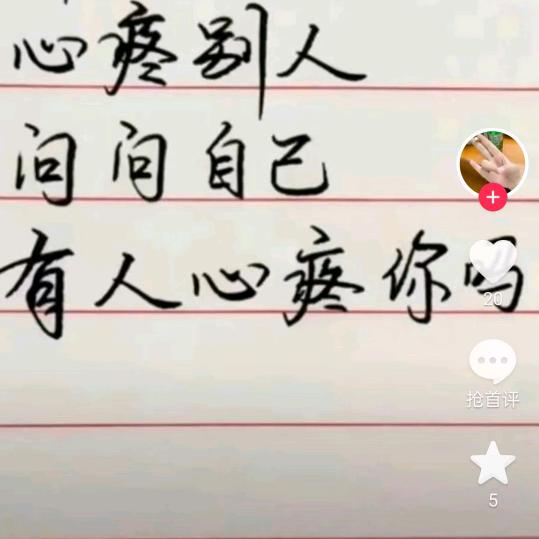 心疼别人
问问自己
有人心疼你吗
20
抢首评
5